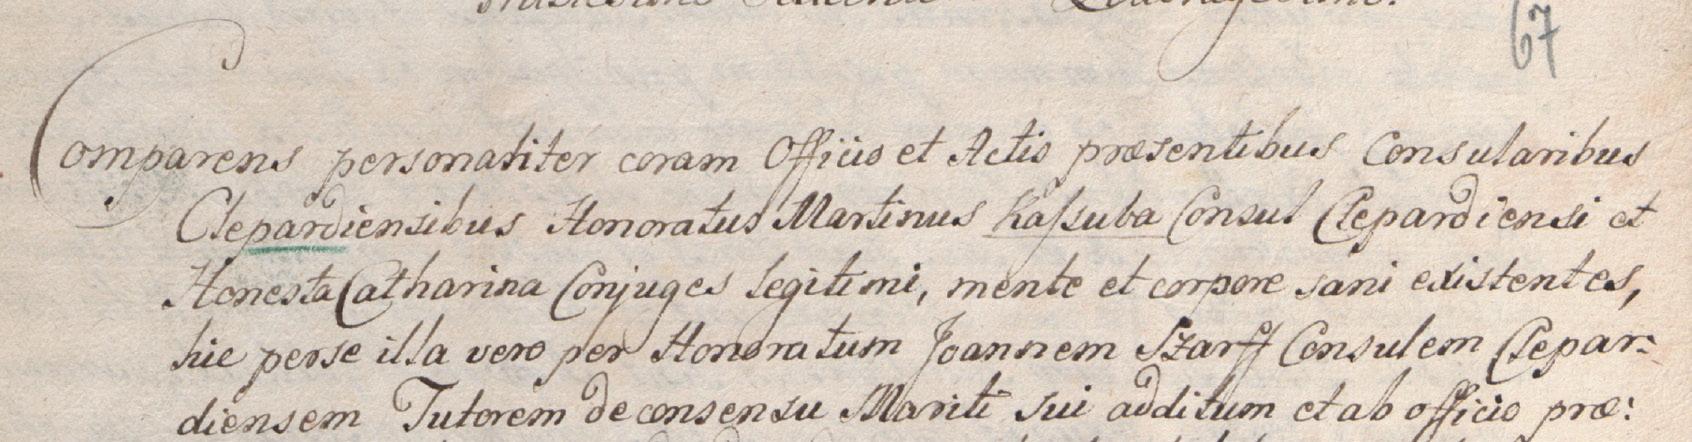 67
Comparens personaliter coram Officio et Actis præsentibus Consularibus
Clepardiensibus Honoratus Martinus Kaſsuba Consul Clepardiensi et
Honesta Catharina Conjuges legitimi, mente et corpore sani existentes,
hic perse illa vero per Honoratum Joannem Szarff Consulem Clepar:
diensem Tutorem de consensu Mariti sui additum et ab officio præ: